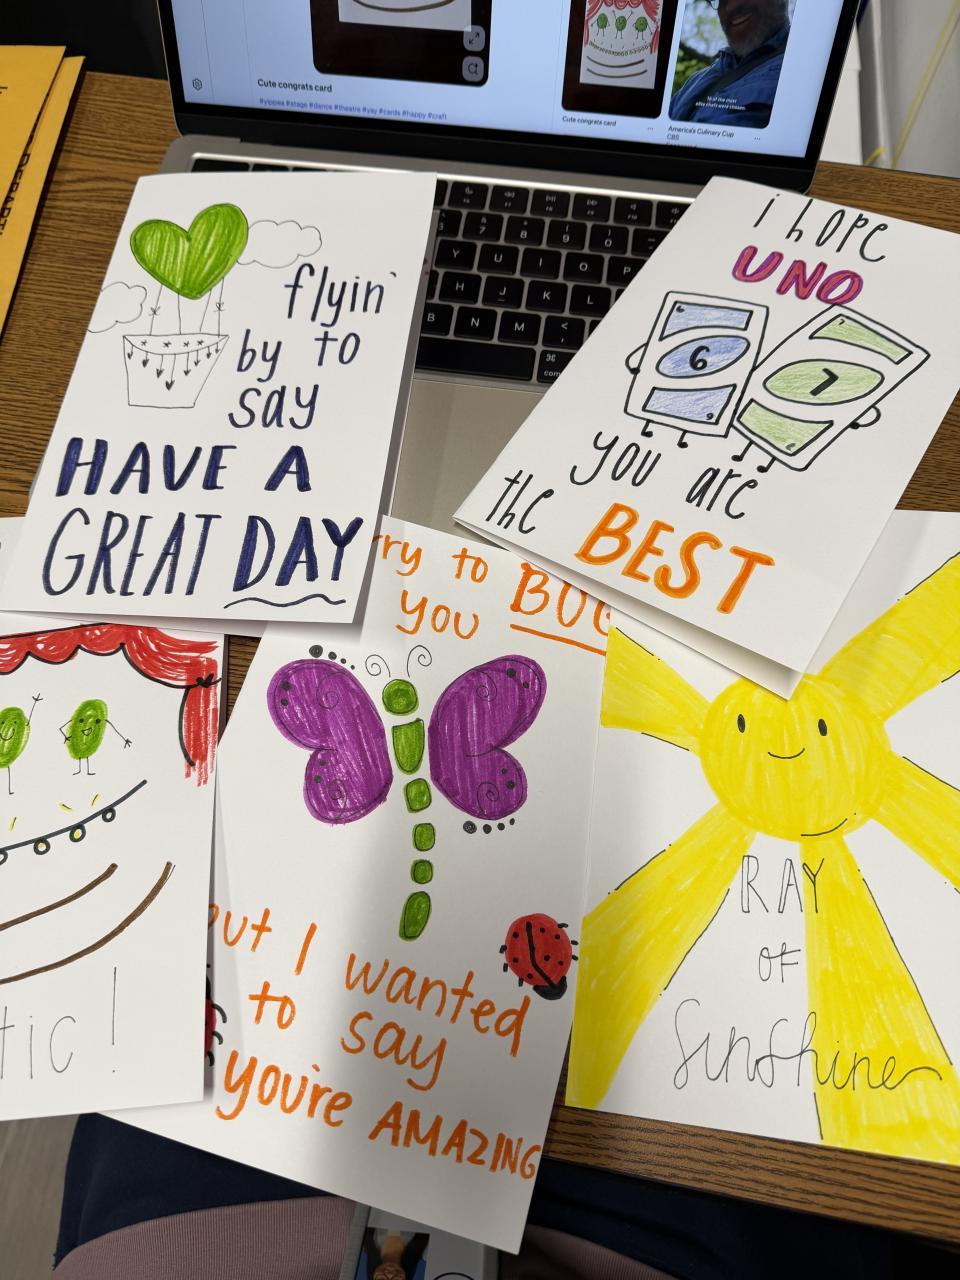 Cute congrats card
#yippea #stage #dance #theatre #yay #cards #happy #craft
Cute congrats card
America's Culinary Cup
CBS
flyin'
by to
say
HAVE A
GREAT DAY
i hope
UNO
6
7
you are
the BEST
rry to BUG
you
but I wanted
to say
you're AMAZING
RAY
OF
Sunshine
tic!
Y U I O P
H J K L
B N M <